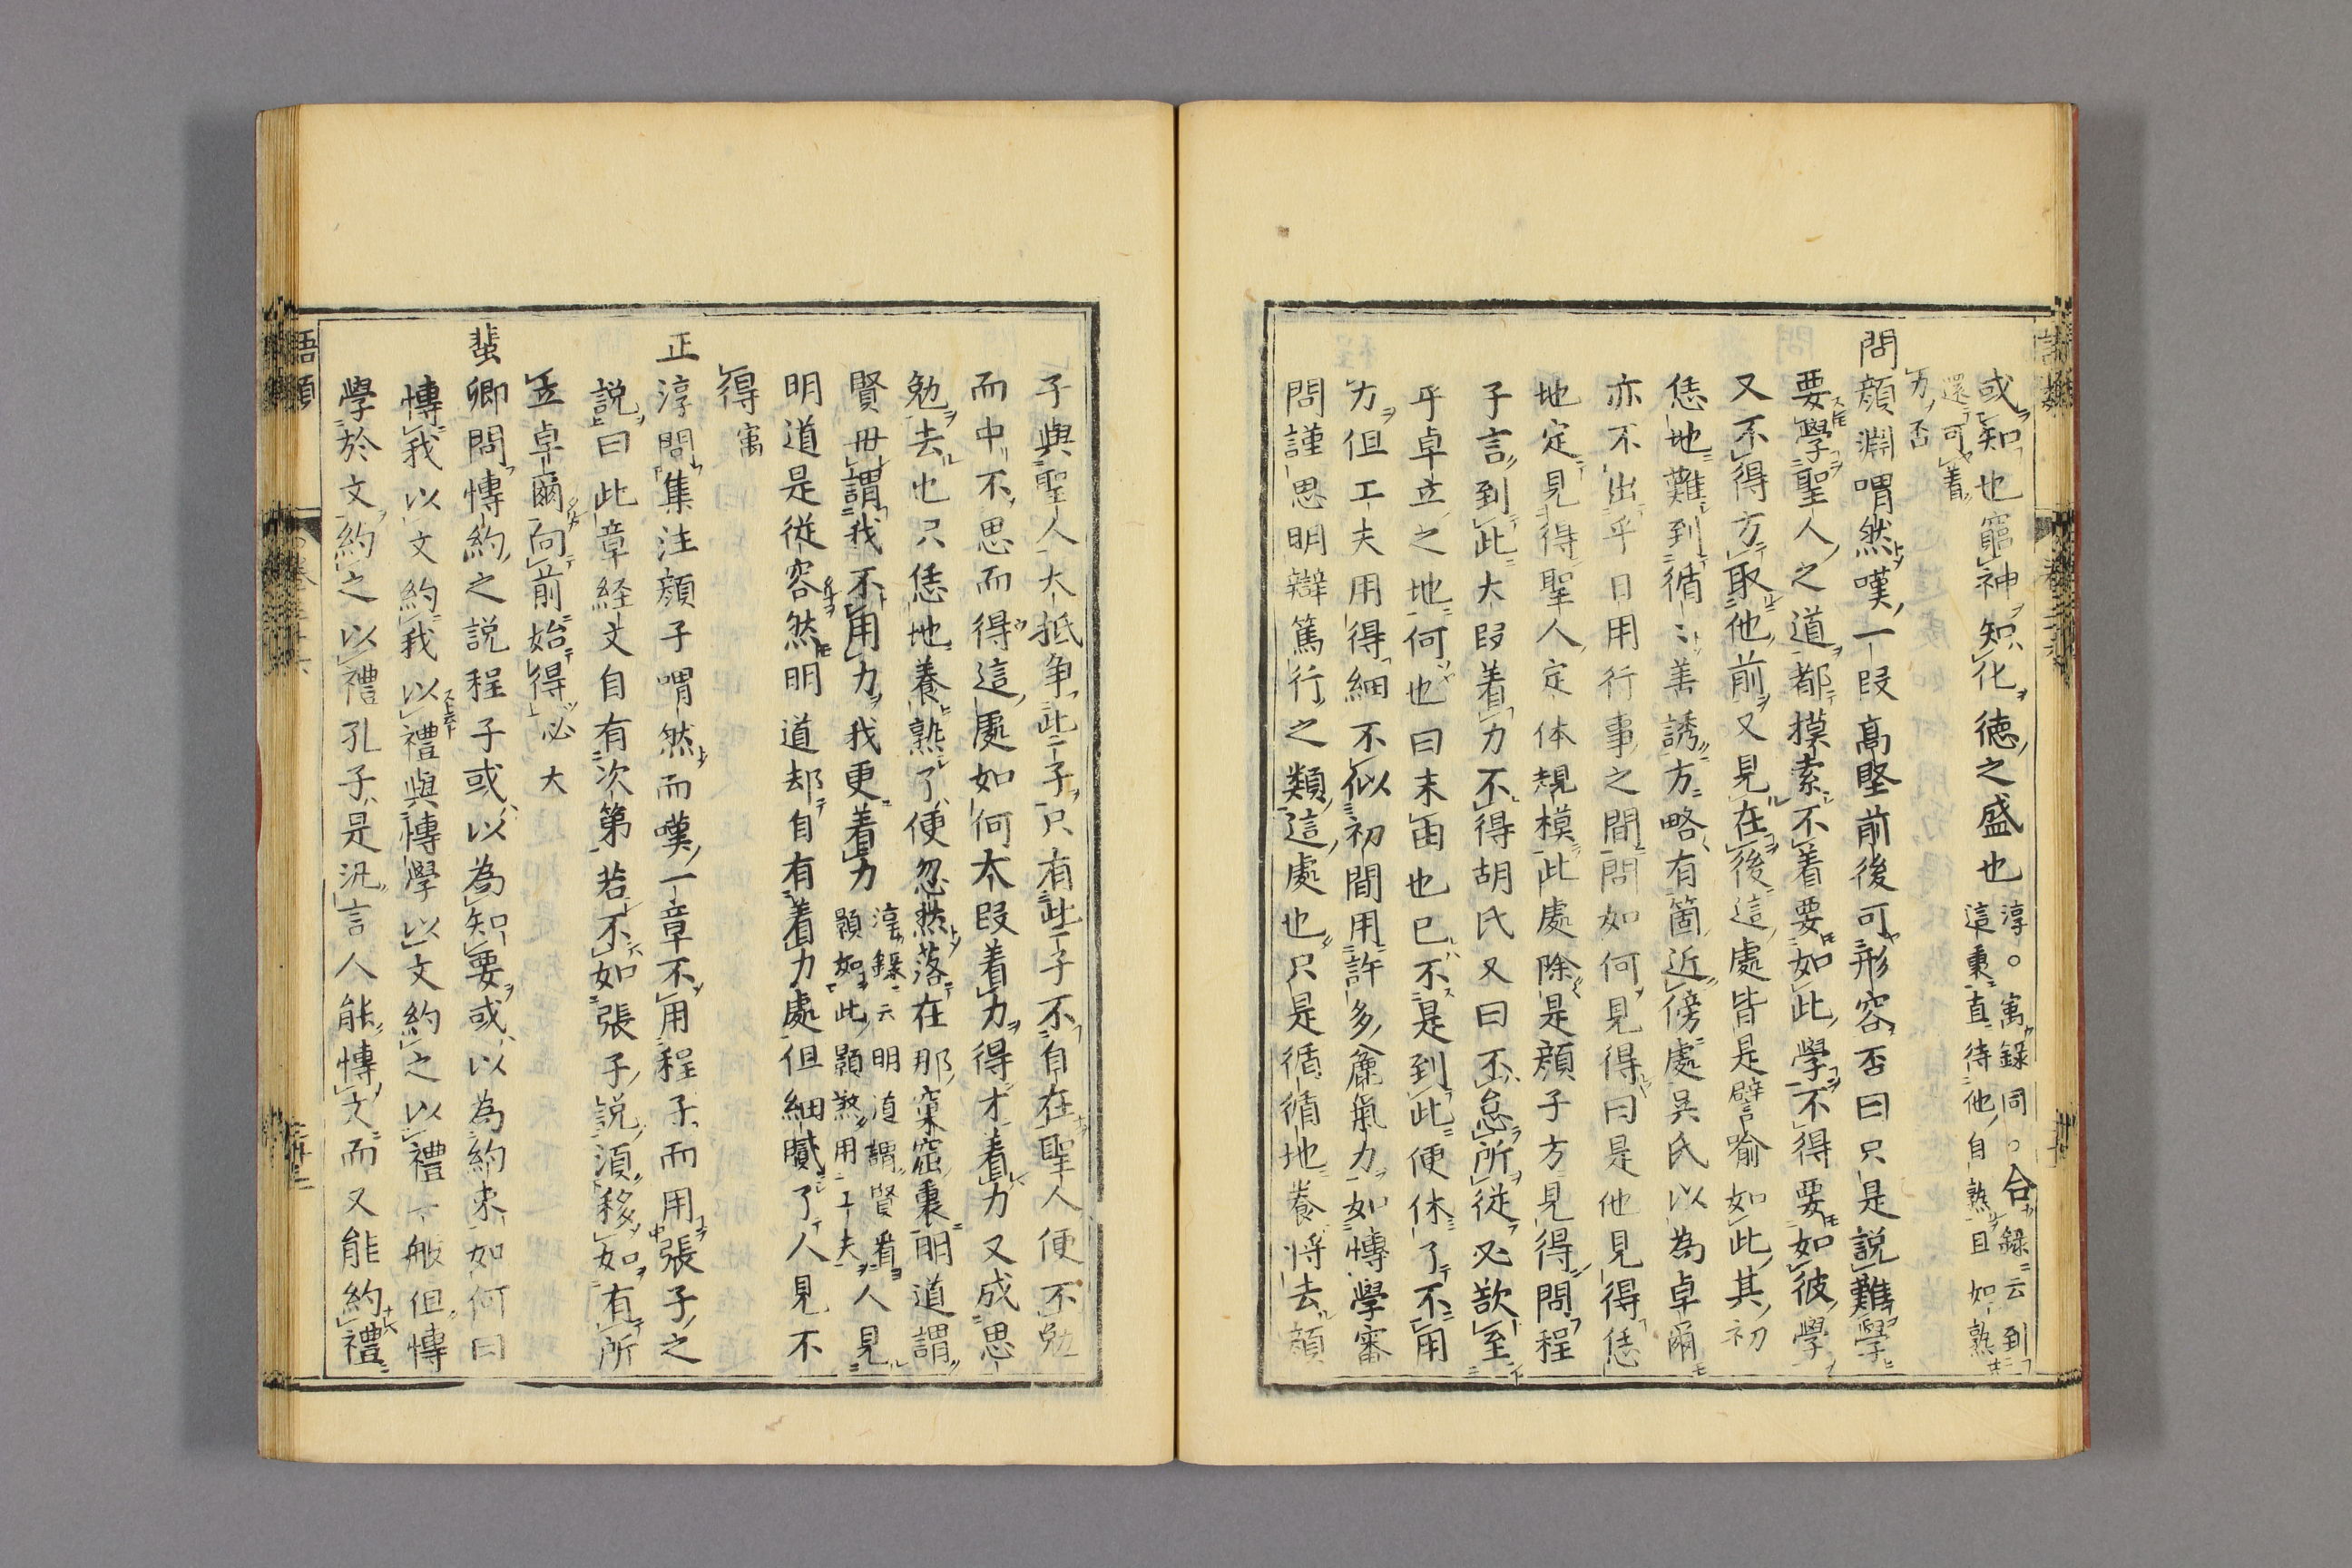 或知也窮神知化德之盛也淳○寓錄同○合錄云到
這裏直待他自熟且如熟
還可着
力否
問顏淵喟然嘆一段高堅前後可形容否曰只是說難學
要學聖人之道都摸索不着要如此學不得要如彼學
又不得方取他前又見在後這處皆是譬喻如此其初
恁地難到循〻善誘方略有箇近傍處吳氏以為卓爾
亦不出乎日用行事之間問如何見得曰是他見得恁
地定見得聖人定体規模此處除是顏子方見得問程
子言到此大段着力不得胡氏又曰不怠所從必欲至
乎卓立之地何也曰末由也已不是到此便休了不用
力但工夫用得細不似初間用許多麄氣力如慱學審
問謹思明辯篤行之類這處也只是循循地養將去顏
子與聖人大抵争些子只有些子不自在聖人便不勉
而中不思而得這處如何大段着力得才着力又成思
勉去也只恁地養熟了便忽然落在那窠窟裏明道謂
賢毋謂我不用力我更着力淳錄云明道謂賢看人見
顥如此顥煞用工夫人見
明道是從容然明道却自有着力處但細膩了人見不
得寓
正淳問集注顏子喟然而嘆一章不用程子而用張子之
說曰此章経文自有次第若不如張子說須移如有所
立卓爾向前始得必大
蜚卿問慱約之說程子或以為知要或以為約束如何曰
慱我以文約我以禮與慱學以文約之以禮一般但慱
學於文約之以禮孔子是汎言人能慱文而又能約禮
語類